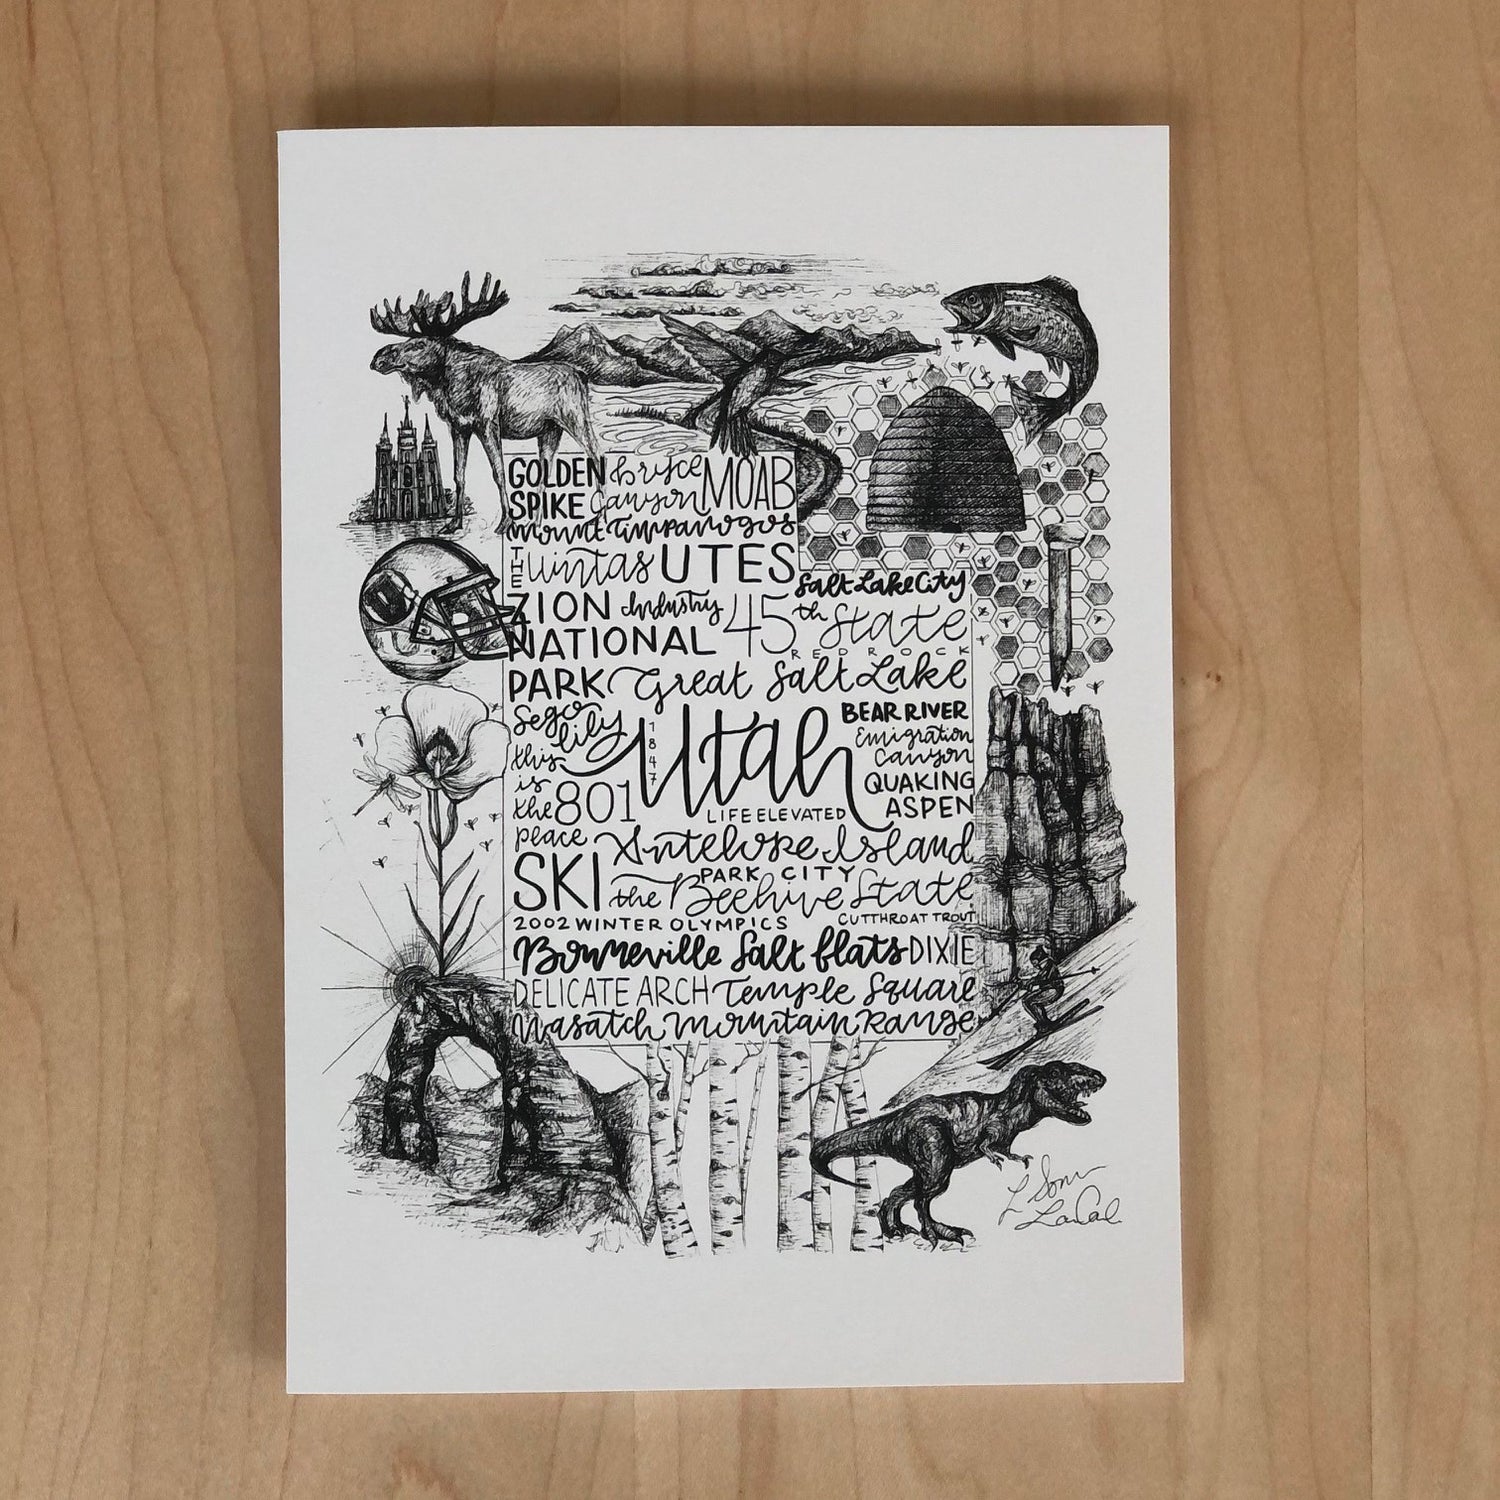 GOLDEN SPIKE
Bryce Canyon
MOAB
Mount Timpanogos
THE Uintas
UTES
Salt Lake City
ZION NATIONAL PARK
Industry
45th State
REDROCK
Great Salt Lake
Sego lily
1847
Utah
BEAR RIVER
Emigration Canyon
this is the place
801
LIFE ELEVATED
QUAKING ASPEN
Antelope Island
SKI
PARK CITY
the Beehive State
2002 WINTER OLYMPICS
CUTTHROAT TROUT
Bonneville Salt flats
DIXIE
DELICATE ARCH
Temple Square
Wasatch Mountain Range